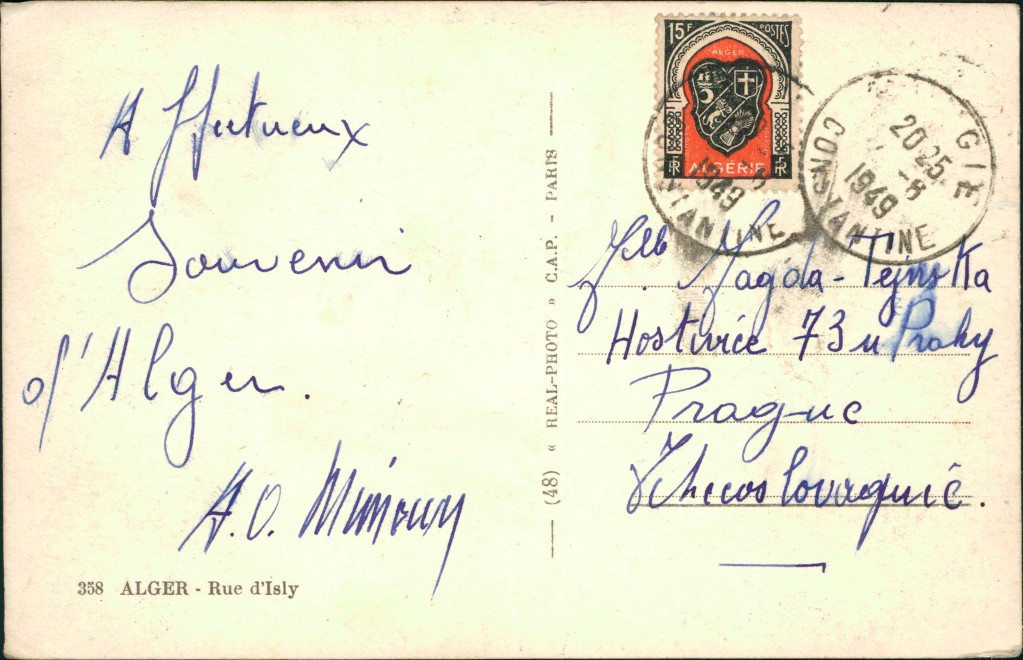 Affectueux
Souvenir
d'Alger.
358 ALGER - Rue d'Isly
(48) « REAL-PHOTO » C.A.P. - PARIS
15F POSTES
ALGER
RF ALGÉRIE RF
1949
CONSTANTINE
20 25
-8
1949
CONSTANTINE
Jagda-Tejnska
Hostivice 73 u Prahy
Prague
Tchécoslovaquie.